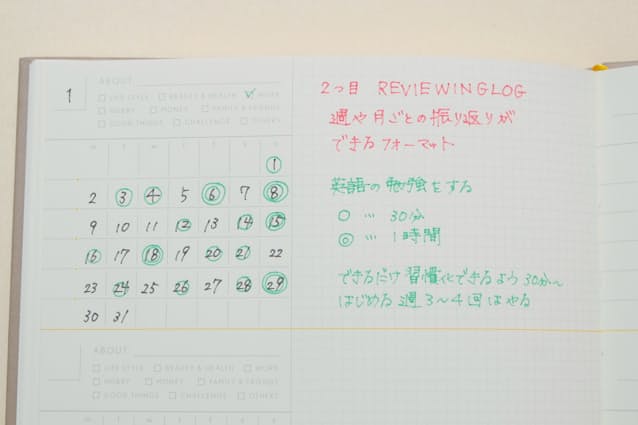 1
ABOUT
LIFE STYLE BEAUTY & HEALTH WORK
HOBBY MONEY FAMILY & FRIENDS
GOOD THINGS CHALLENGE OTHERS
1
2 3 4 5 6 7 8
9 10 11 12 13 14 15
16 17 18 19 20 21 22
23 24 25 26 27 28 29
30 31
2つ目 REVIEWING LOG
週や月ごとの振り返りが
できるフォーマット
英語の勉強をする
○ … 30分
◎ … 1時間
できるだけ習慣化できるよう30分〜
はじめる 週3〜4回はやる
ABOUT
LIFE STYLE BEAUTY & HEALTH WORK
HOBBY MONEY FAMILY & FRIENDS
GOOD THINGS CHALLENGE OTHERS